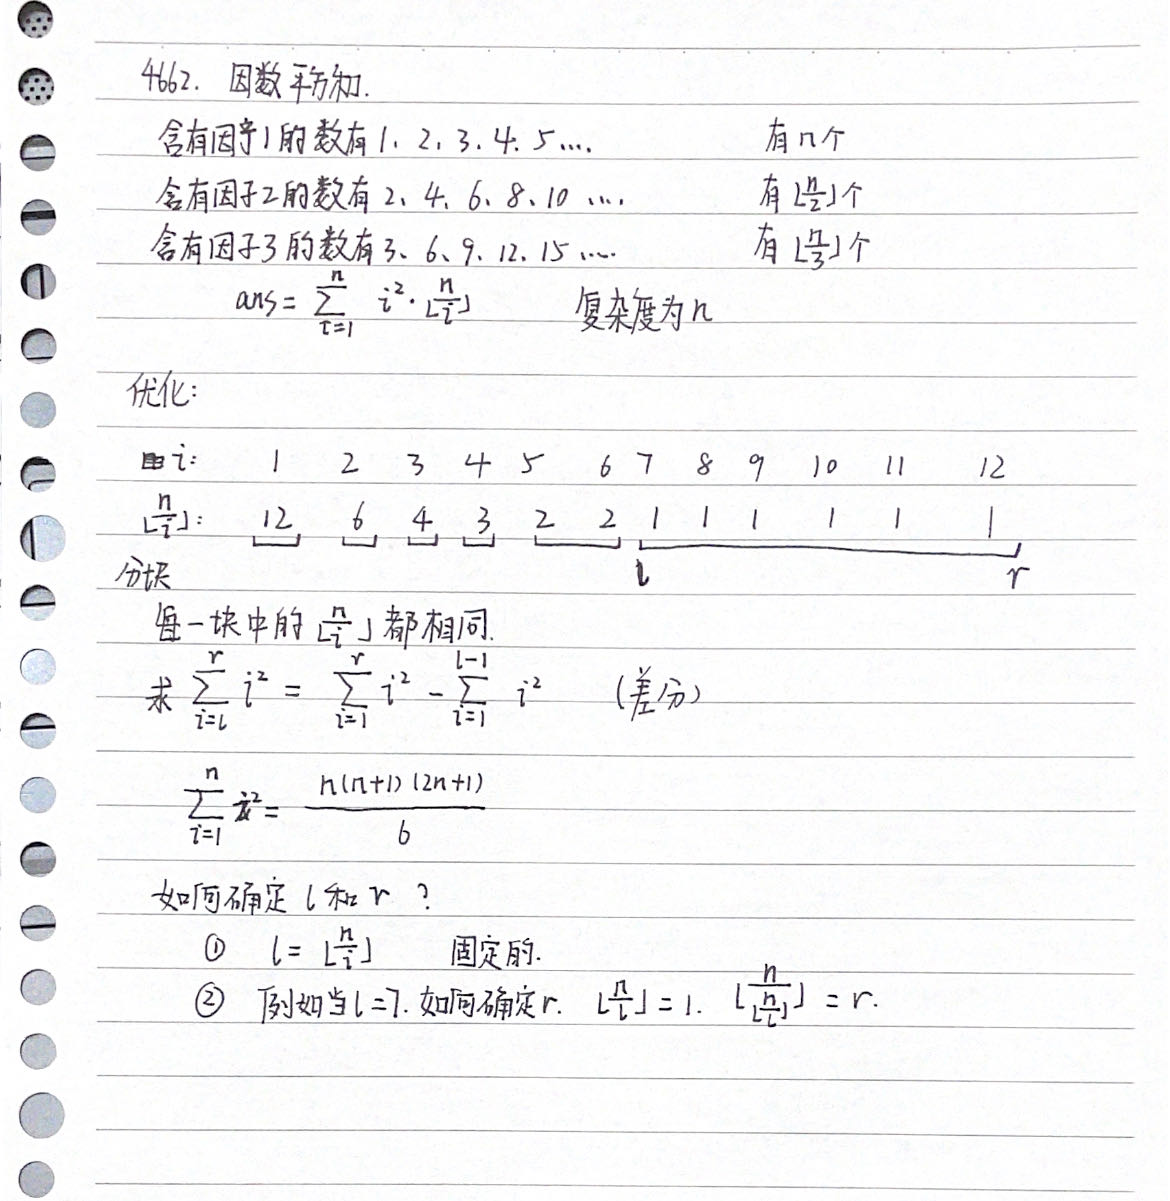 4662. 因数平方和.
含有因子1的数有1、2、3、4、5…. 有n个
含有因子2的数有2、4、6、8、10 …. 有⌊n/2⌋个
含有因子3的数有3、6、9、12、15 …. 有⌊n/3⌋个
ans = ∑_{i=1}^{n} i²·⌊n/i⌋ 复杂度为n
优化:
i: 1 2 3 4 5 6 7 8 9 10 11 12
⌊n/i⌋: 12 6 4 3 2 2 1 1 1 1 1 1
l r
分块
每一块中的⌊n/i⌋都相同.
求 ∑_{i=l}^{r} i² = ∑_{i=1}^{r} i² - ∑_{i=1}^{l-1} i² (差分)
∑_{i=1}^{n} i² = n(n+1)(2n+1)/6
如何确定l和r?
① l = ⌊n/i⌋ 固定的.
② 例如当l=7. 如何确定r. ⌊n/l⌋=1. ⌊n/⌊n/l⌋⌋ = r.